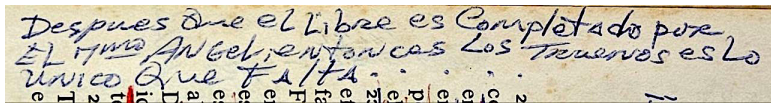 Despues Que el Libre es Completado por
EL 7mo ANGEL, entonces Los Truenos es Lo
UNICO QUE FALTA. . . . . .